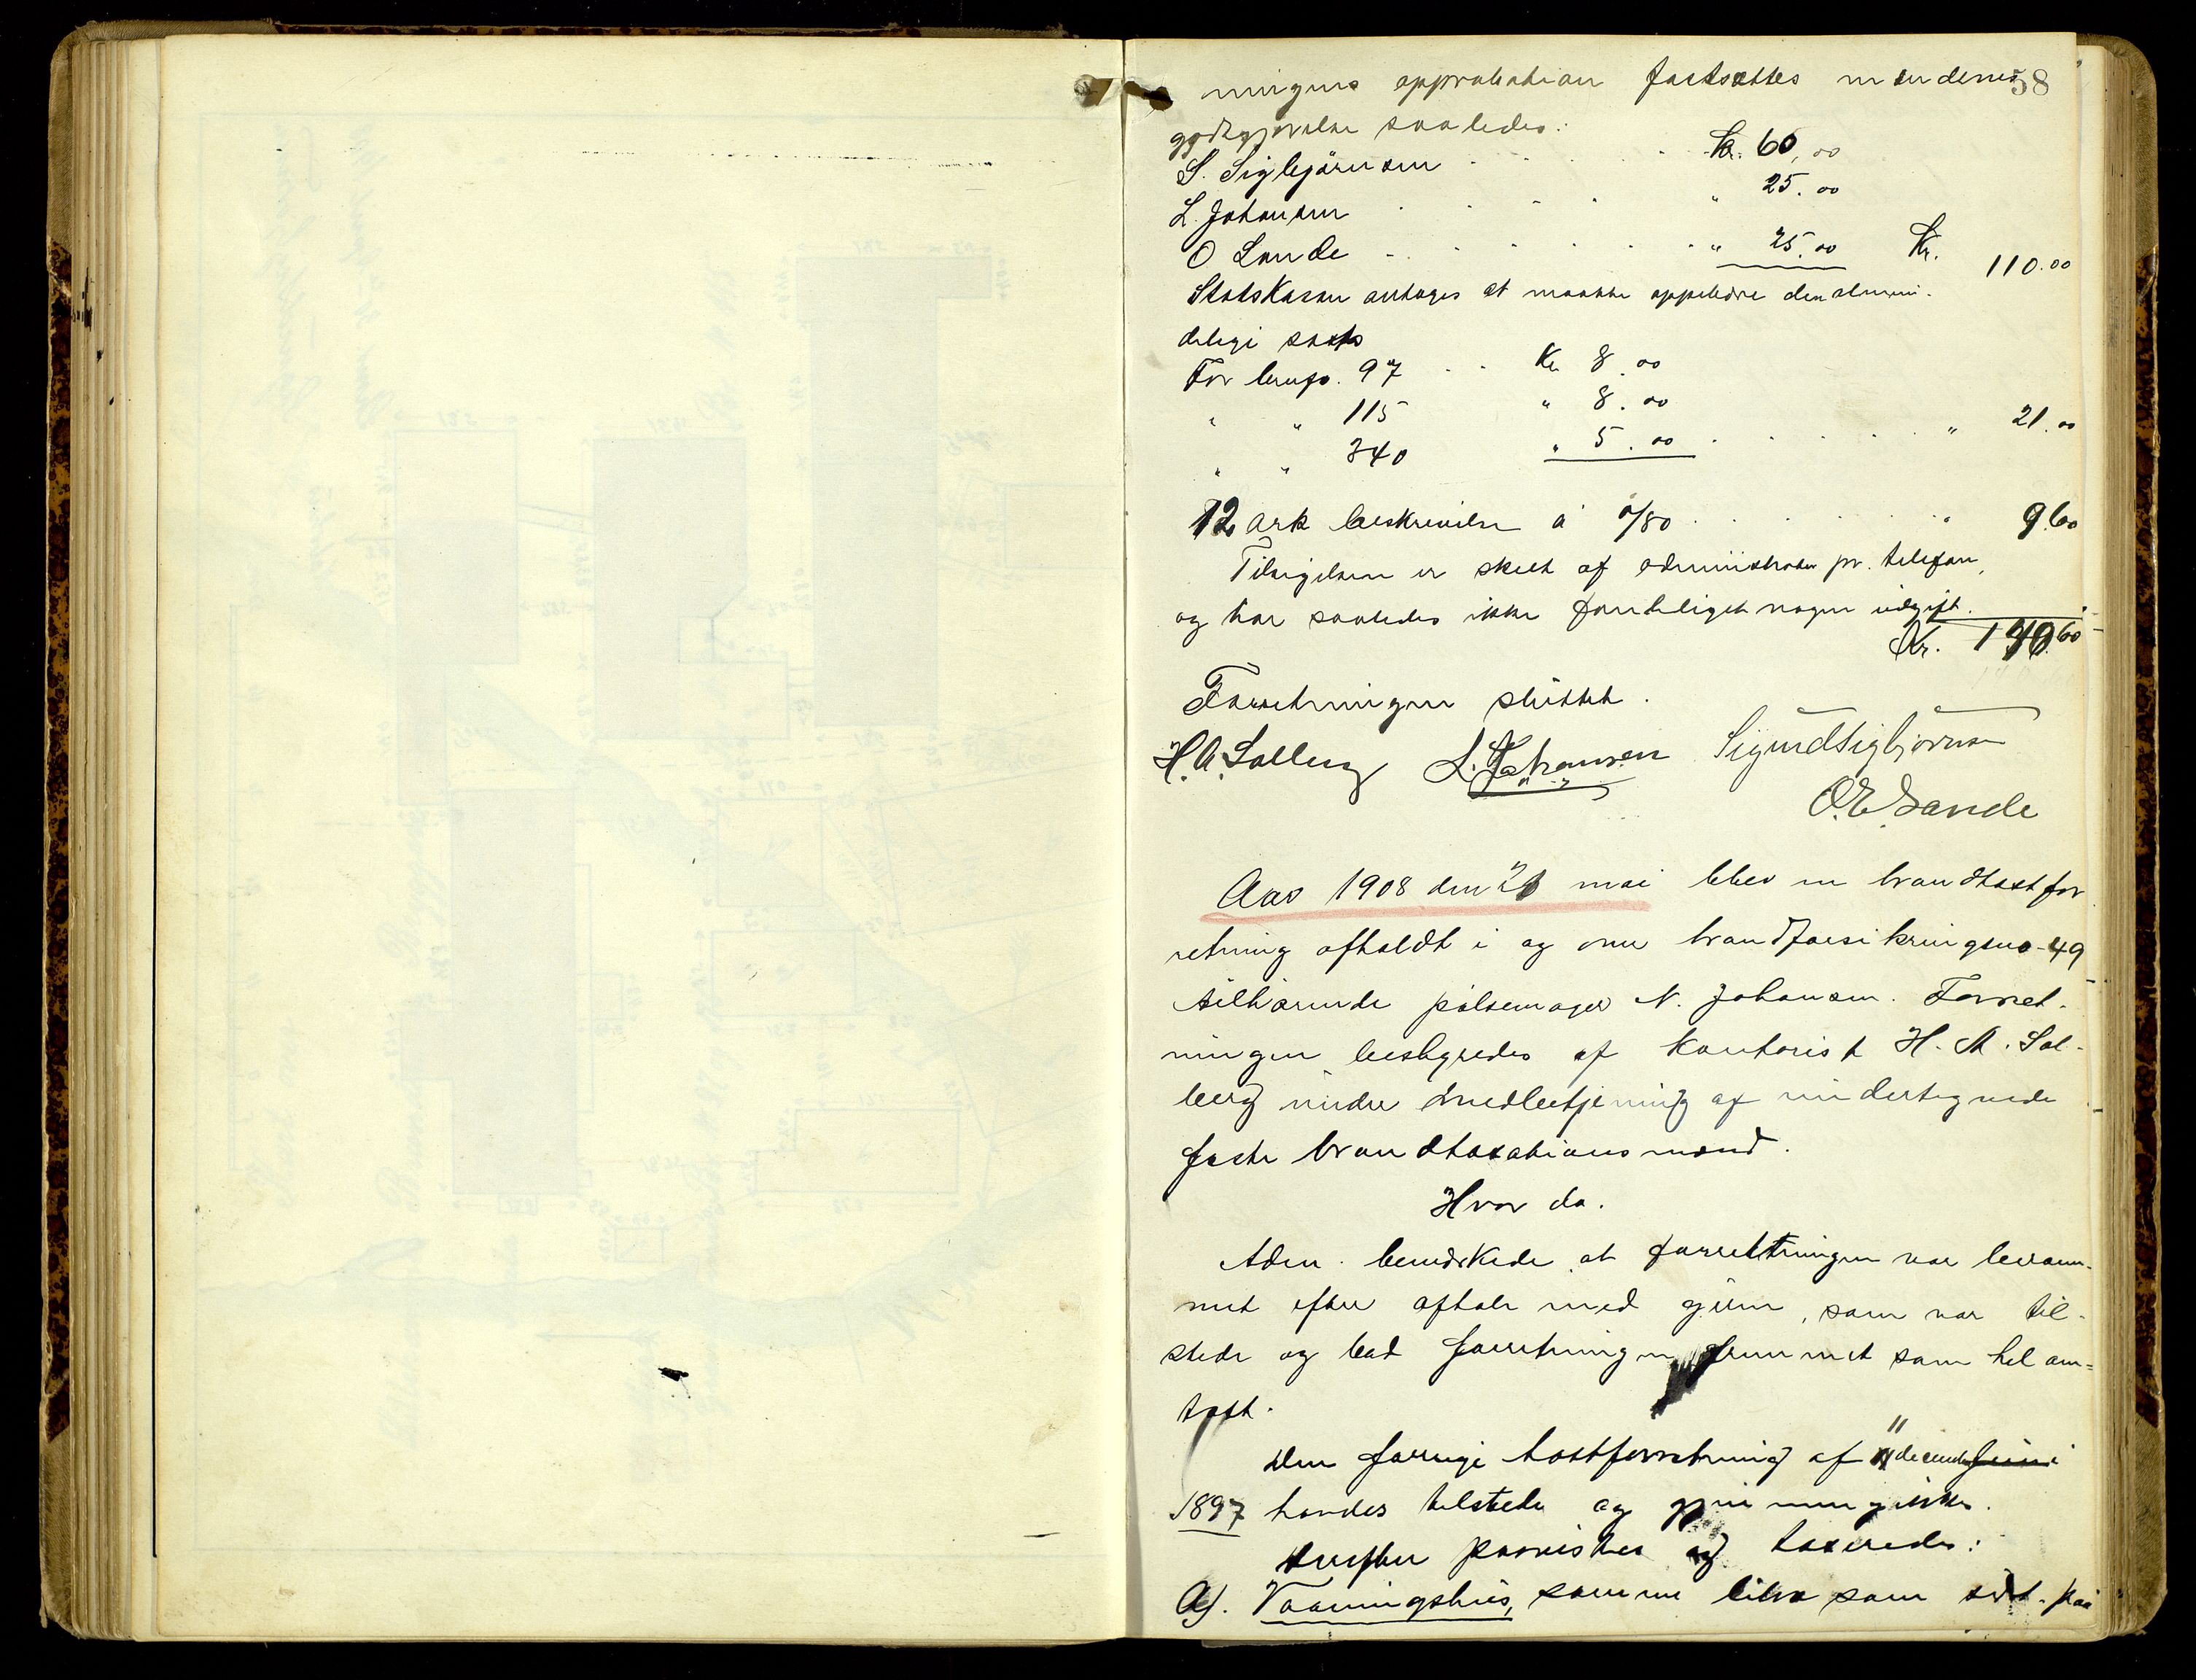 ningens approbation fastsættes mændenes 58
godtgjørelse saaledes:
S. Sigbjørnsen . . . . Kr. 60,00
L. Johansen . . . . " 25.00
O Lande . . . . . " 25.00 Kr. 110.00
Statskassen antages at maatte oppebære den almin-
delige sats
For brnfo. 97 . . Kr 8.00
" " 115 " 8.00
" " 340 " 5.00 . . . . . " 21.00
12 ark beskrivelse à 0/80 . . . . . " 9.60
Tilsigelsen er skeet af administrator pr. telefon,
og har saaledes ikke foranlediget nogen udgift.
Kr. 140.60
Forretningen sluttet.
H. A. Solberg L. Johansen Sigurd Sigbjørnsen
O. E. Lande
Aar 1908 den 21 mai blev en brandtaxtfor
retning afholdt i og over brandforsikringsno. 49
tilhørende pølsemager N. Johansen. Forret-
ningen bestyredes af kontorist H. A. Sol-
berg under medbetjening af undertegnede
faste brandtaxationsmænd.
Hvor da.
Adm. bemærkede at forretningen var beram-
met efter aftale med eieren, som var til-
stede og bad forretningen fremmet som hel om-
taxt.
Den forrige taxtforretning af 11 december juni
1897 havdes tilstede og gjennemgikkes.
Derefter paavistes og taxeredes:
A). Vaaningshus, samme litra som sidst. paa